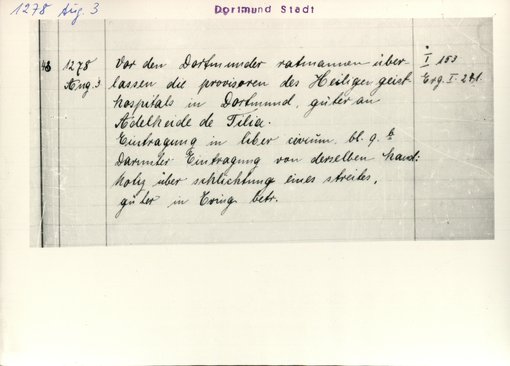 1278 Aug. 3
Dortmund Stadt
48
1278
Aug. 3
Vor den Dortmunder ratmannen über-
lassen die provisoren des Heiligengeist
hospitals in Dortmund, güter an
Adelheide de Tilia.
Eintragung in liber civium, bl. 9. b
Darunter Eintragung von derselben Hand:
Notiz über schlichtung eines streites,
güter in Eving betr.
I 153
Erg. I. 281.